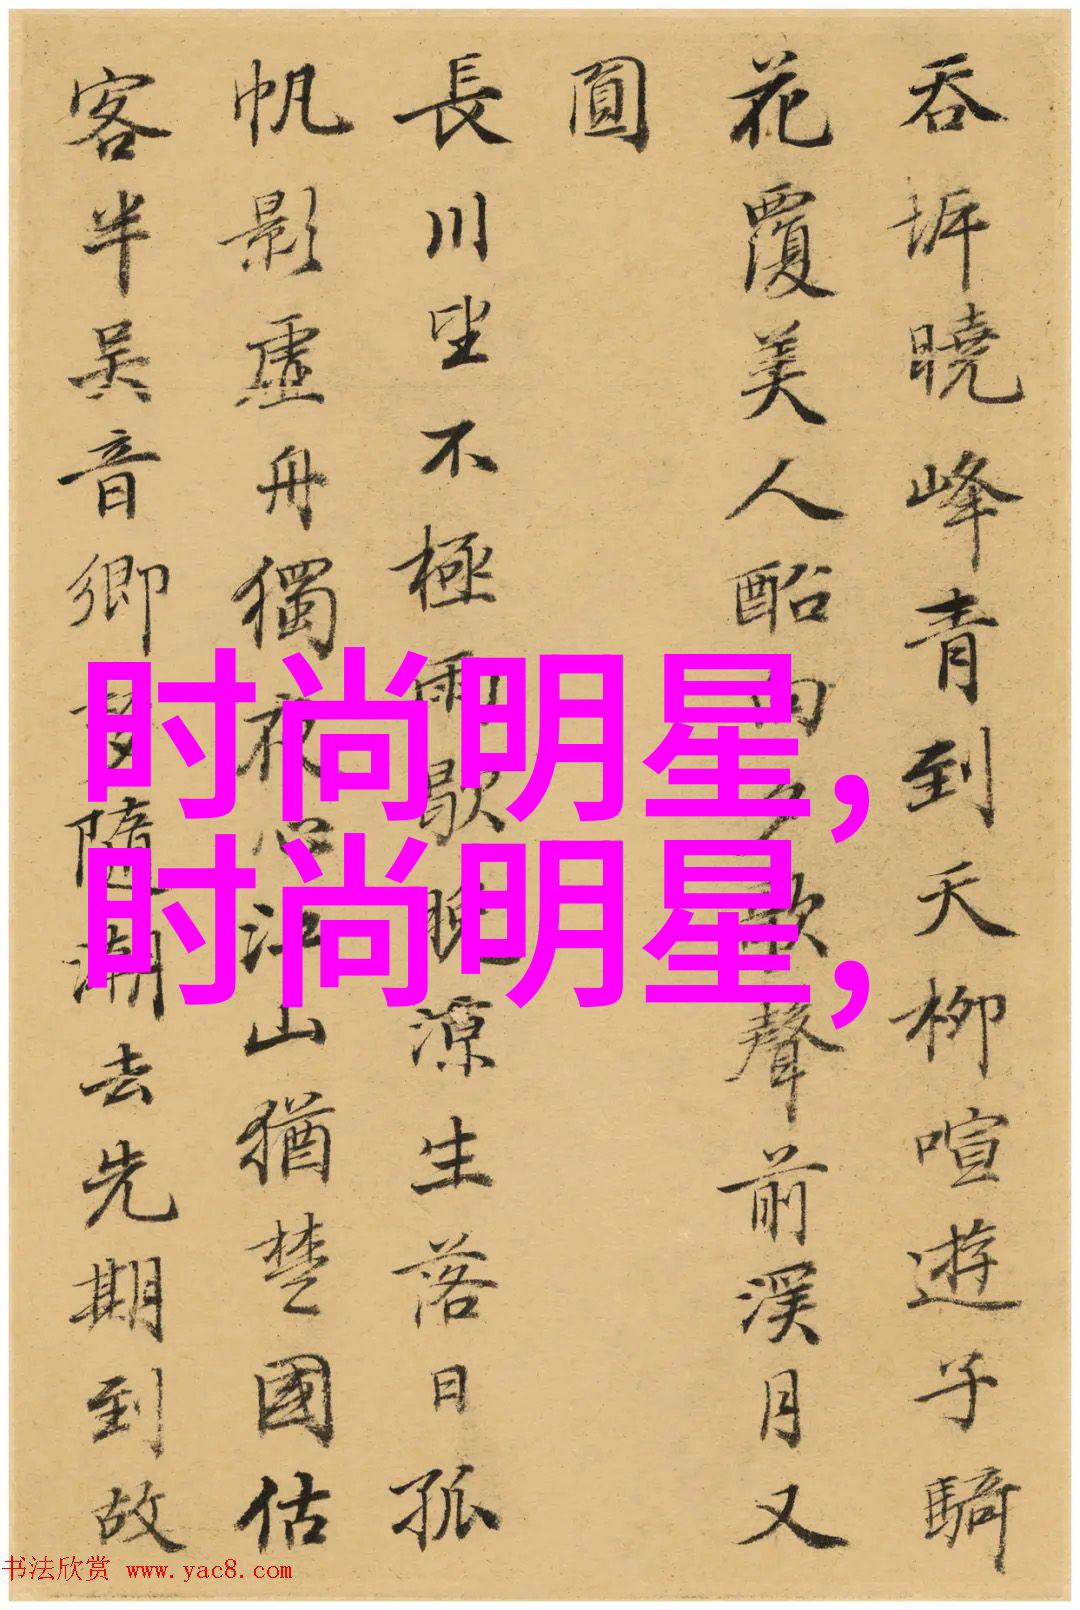 吞坼曉峰青到天柳喧遊子騎
花覆美人酩向夕歌聲前溪月又
圓
長川坐不極雨歇晚涼生落日孤
帆影虛舟獨夜心江山猶楚國估
客半吳音鄉夢隨潮去先期到故
时尚明星,
时尚明星,
书法欣赏 www.yac8.com